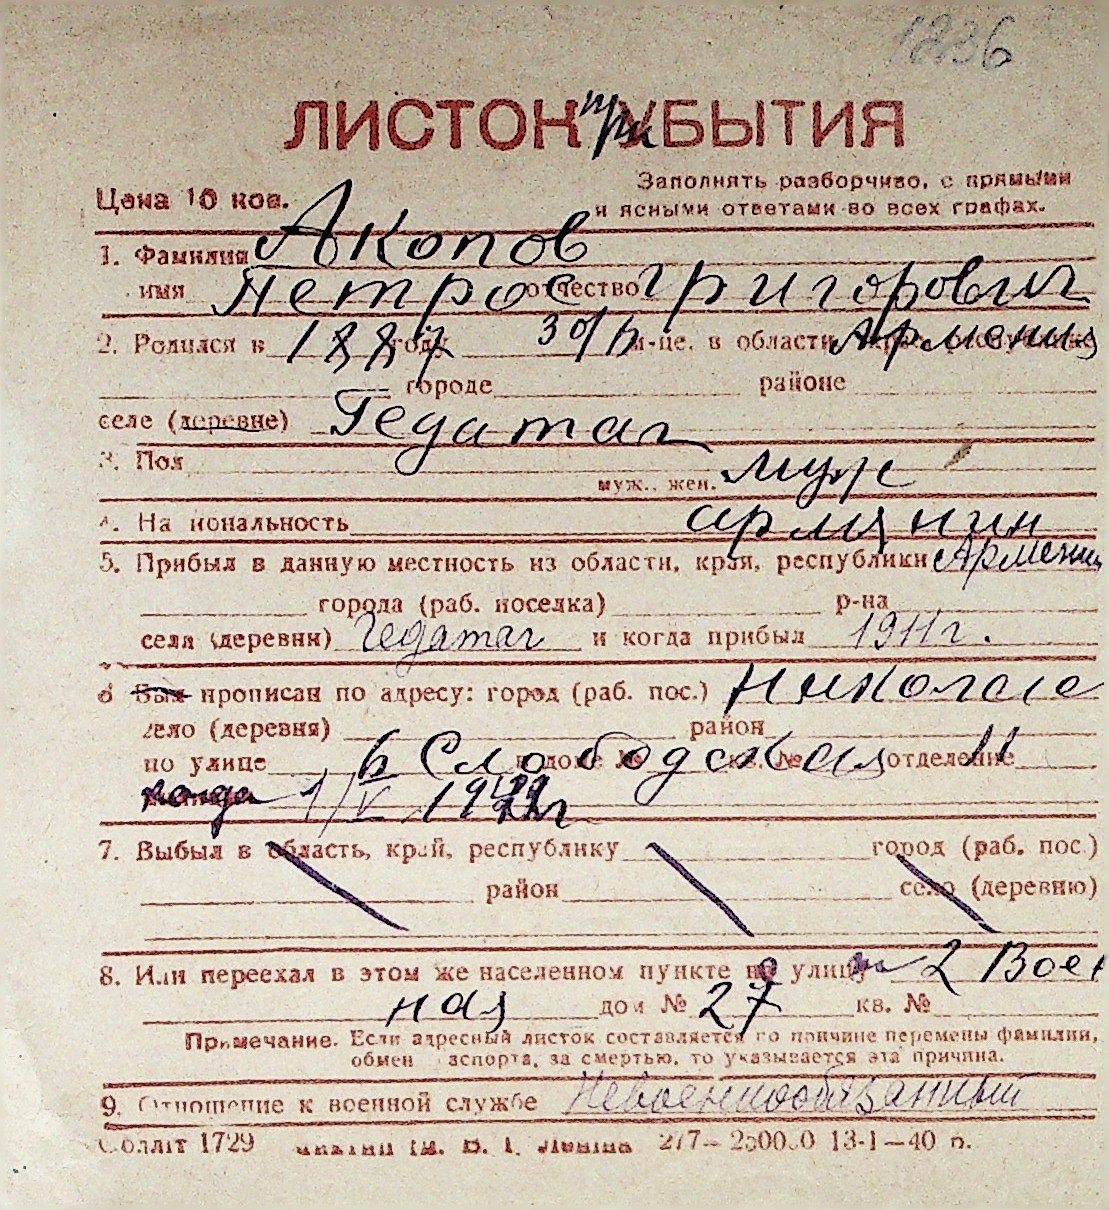 1836
ЛИСТОК при УБЫТИЯ
Цена 10 коп.
Заполнять разборчиво, с прямыми
и ясными ответами во всех графах.
1. Фамилия Акопов
имя Петрос отчество Григорович
2. Родился в 1887 году 30/IV м-це, в области, крае, республике Армения
городе районе
селе (деревне) Гедатаг
3. Пол муж., жен. муж
4. Национальность армянин
5. Прибыл в данную местность из области, края, республики Армении
города (раб. поселка) р-на
села (деревни) Гедатаг и когда прибыл 1911 г.
6 Был прописан по адресу: город (раб. пос.) Николаев
село (деревня) район
по улице 6 Слободская в доме № кв. № отделение 11
когда 1/V 1942 г
7. Выбыл в область, край, республику город (раб. пос.)
район село (деревню)
8. Или переехал в этом же населенном пункте по улицу 2 Воен
ная дом № 27 кв. №
Примечание. Если адресный листок составляется по причине перемены фамилии,
обмен паспорта, за смертью, то указывается эта причина.
9. Отношение к военной службе Невоеннообязанный
Обллiт 1729 277— 13-1—40 р.